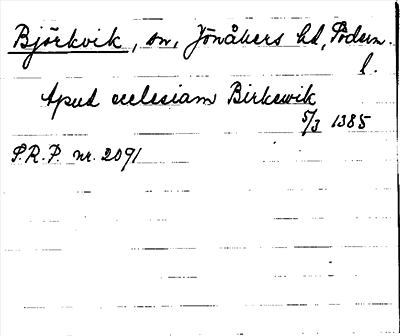 Björkvik, sn, Jönåkers hd, Söderm.
l.
Apud ecclesiam Birkewik
5/3 1385
S.R.P. nr. 2091